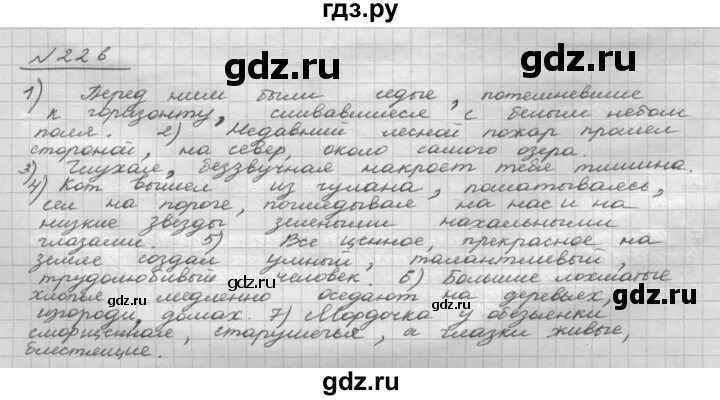 гдз.ру
№226
gdz.ru gdz.ru
1) Перед ним были седые, потемневшие
к горизонту, сливавшиеся с белым небом
поля. 2) Недавний лесной пожар прошел
стороной, на север, около самого озера.
3) Глухая, беззвучная накроет тебя тишина.
4) Кот вышел из чулана, пошатываясь,
сел на пороге, поглядывая на нас и на
низкие звезды зелеными нахальными
глазами. 5) Все ценное, прекрасное на
земле создал умный, талантливый,
трудолюбивый человек. 6) Большие лохматые
хлопья медленно оседают на деревьях,
изгороди, домах. 7) Мордочка у обезьянки
сморщенная, старушечья, а глазки живые,
блестящие.
gdz.ru gdz.ru
gdz.ru gdz.ru
gdz.ru gdz.ru
gdz.ru
gdz.ru